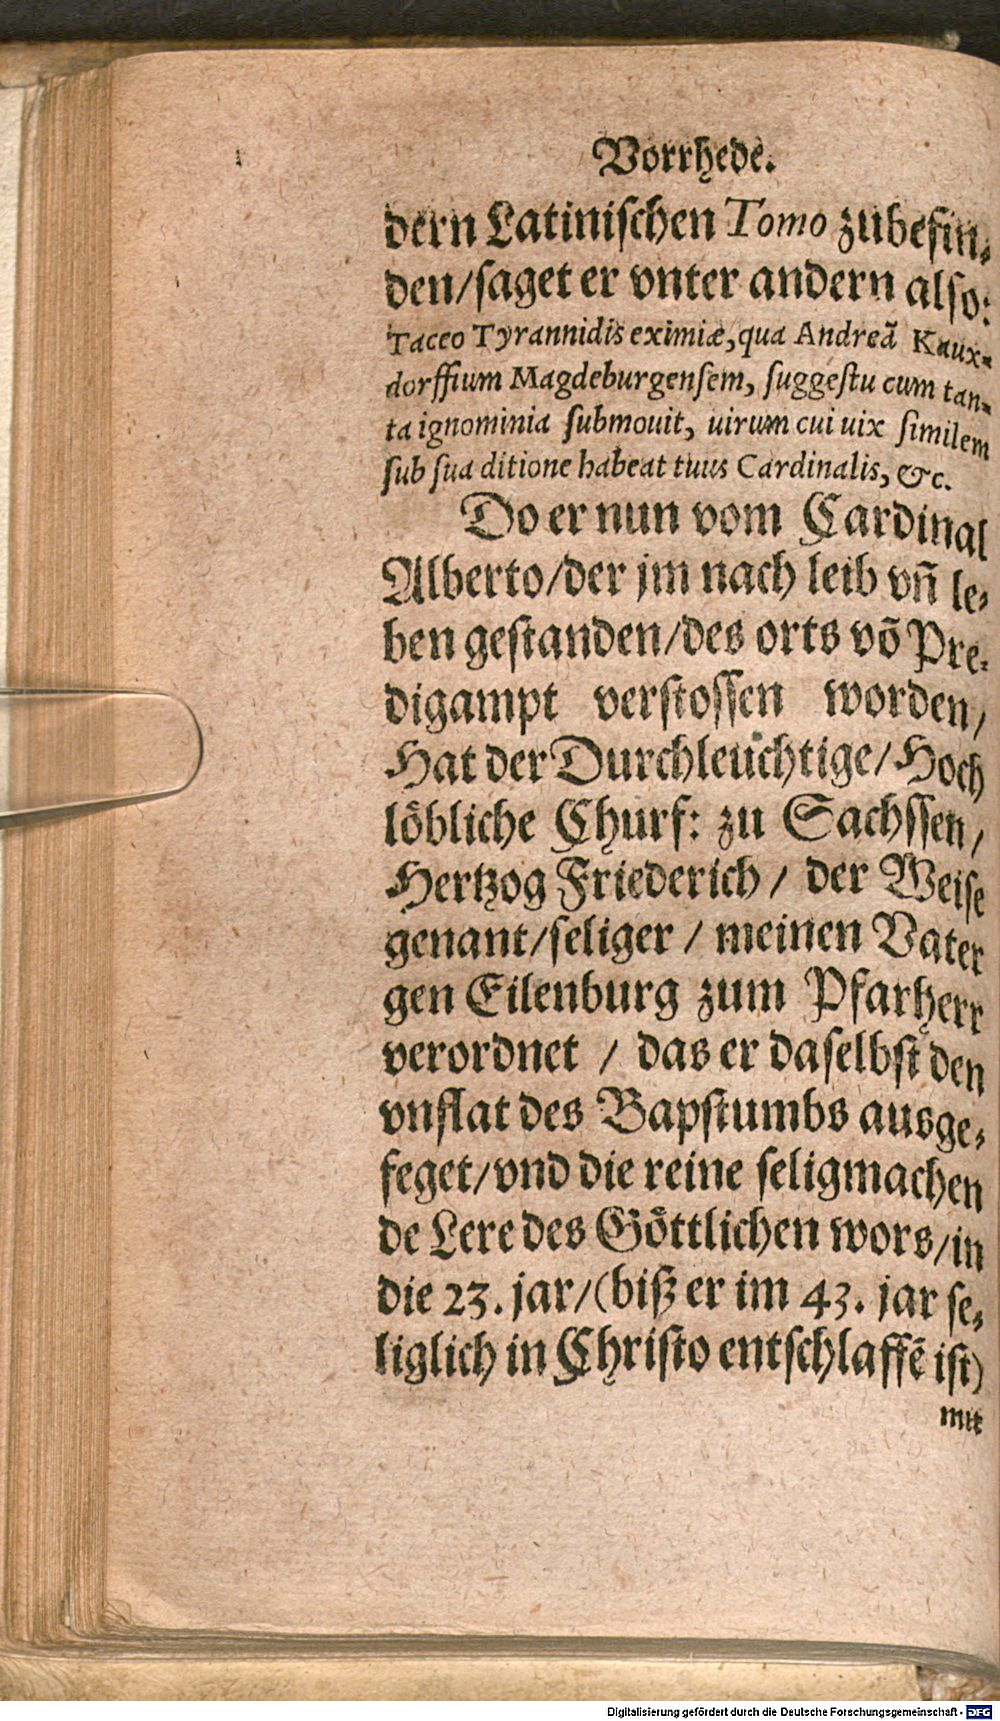 Vorrhede.
dern Latinischen Tomo zubefin⸗
den/saget er vnter andern also:
Taceo Tyrannidis eximiæ, qua Andreã Kaux=
dorffium Magdeburgensem, suggestu cum tan=
ta ignominia submouit, uirum cui uix similem
sub sua ditione habeat tuus Cardinalis, &c.
Do er nun vom Cardinal
Alberto/der jm nach leib vñ le⸗
ben gestanden/des orts võ Pre⸗
digampt verstossen worden/
Hat der Durchleuchtige/Hoch
löbliche Churf: zu Sachssen/
Hertzog Friederich/ der Weise
genant/seliger/ meinen Vater
gen Eilenburg zum Pfarherr
verordnet / das er daselbst den
vnflat des Bapstumbs ausge⸗
feget/vnd die reine seligmachen
de Lere des Göttlichen wors/in
die 23. jar/(biß er im 43. jar se⸗
liglich in Christo entschlaffẽ ist)
mit
Digitalisierung gefördert durch die Deutsche Forschungsgemeinschaft - DFG